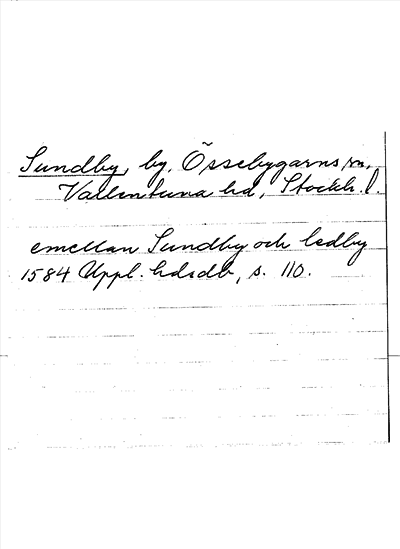 Sundby, by, Össebygarns sn,
Vallentuna hd, Stockh. l.
emellan Sundby och Ledby
1584 Uppl. hdsdb, s. 110.